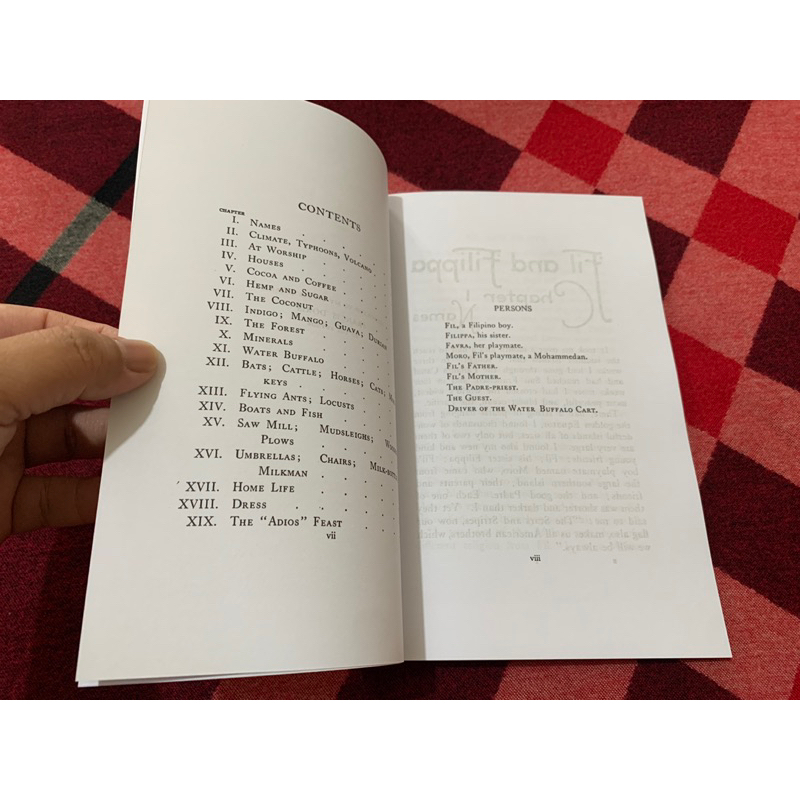 CONTENTS
CHAPTER
I. NAMES . . . . .
II. CLIMATE, TYPHOONS, VOLCANO .
III. AT WORSHIP . . . .
IV. HOUSES . . . . .
V. COCOA AND COFFEE . . .
VI. HEMP AND SUGAR . . .
VII. THE COCONUT . . . .
VIII. INDIGO; MANGO; GUAVA; DURION
IX. THE FOREST . . . .
X. MINERALS . . . .
XI. WATER BUFFALO . . . .
XII. BATS; CATTLE; HORSES; CATS;
KEYS . . . .
XIII. FLYING ANTS; LOCUSTS . .
XIV. BOATS AND FISH . . . .
XV. SAW MILL; MUDSLEIGHS;
PLOWS . . . .
XVI. UMBRELLAS; CHAIRS;
MILKMAN . . . .
XVII. HOME LIFE . . . .
XVIII. DRESS . . . . .
XIX. THE "ADIOS" FEAST . .
vii
Fil and Filippa
Chapter I
Names
PERSONS
FIL, a Filipino boy.
FILIPPA, his sister.
FAVRA, her playmate.
MORO, Fil's playmate, a Mohammedan.
FIL'S FATHER.
FIL'S MOTHER.
THE PADRE-PRIEST.
THE GUEST.
DRIVER OF THE WATER BUFFALO CART.
viii